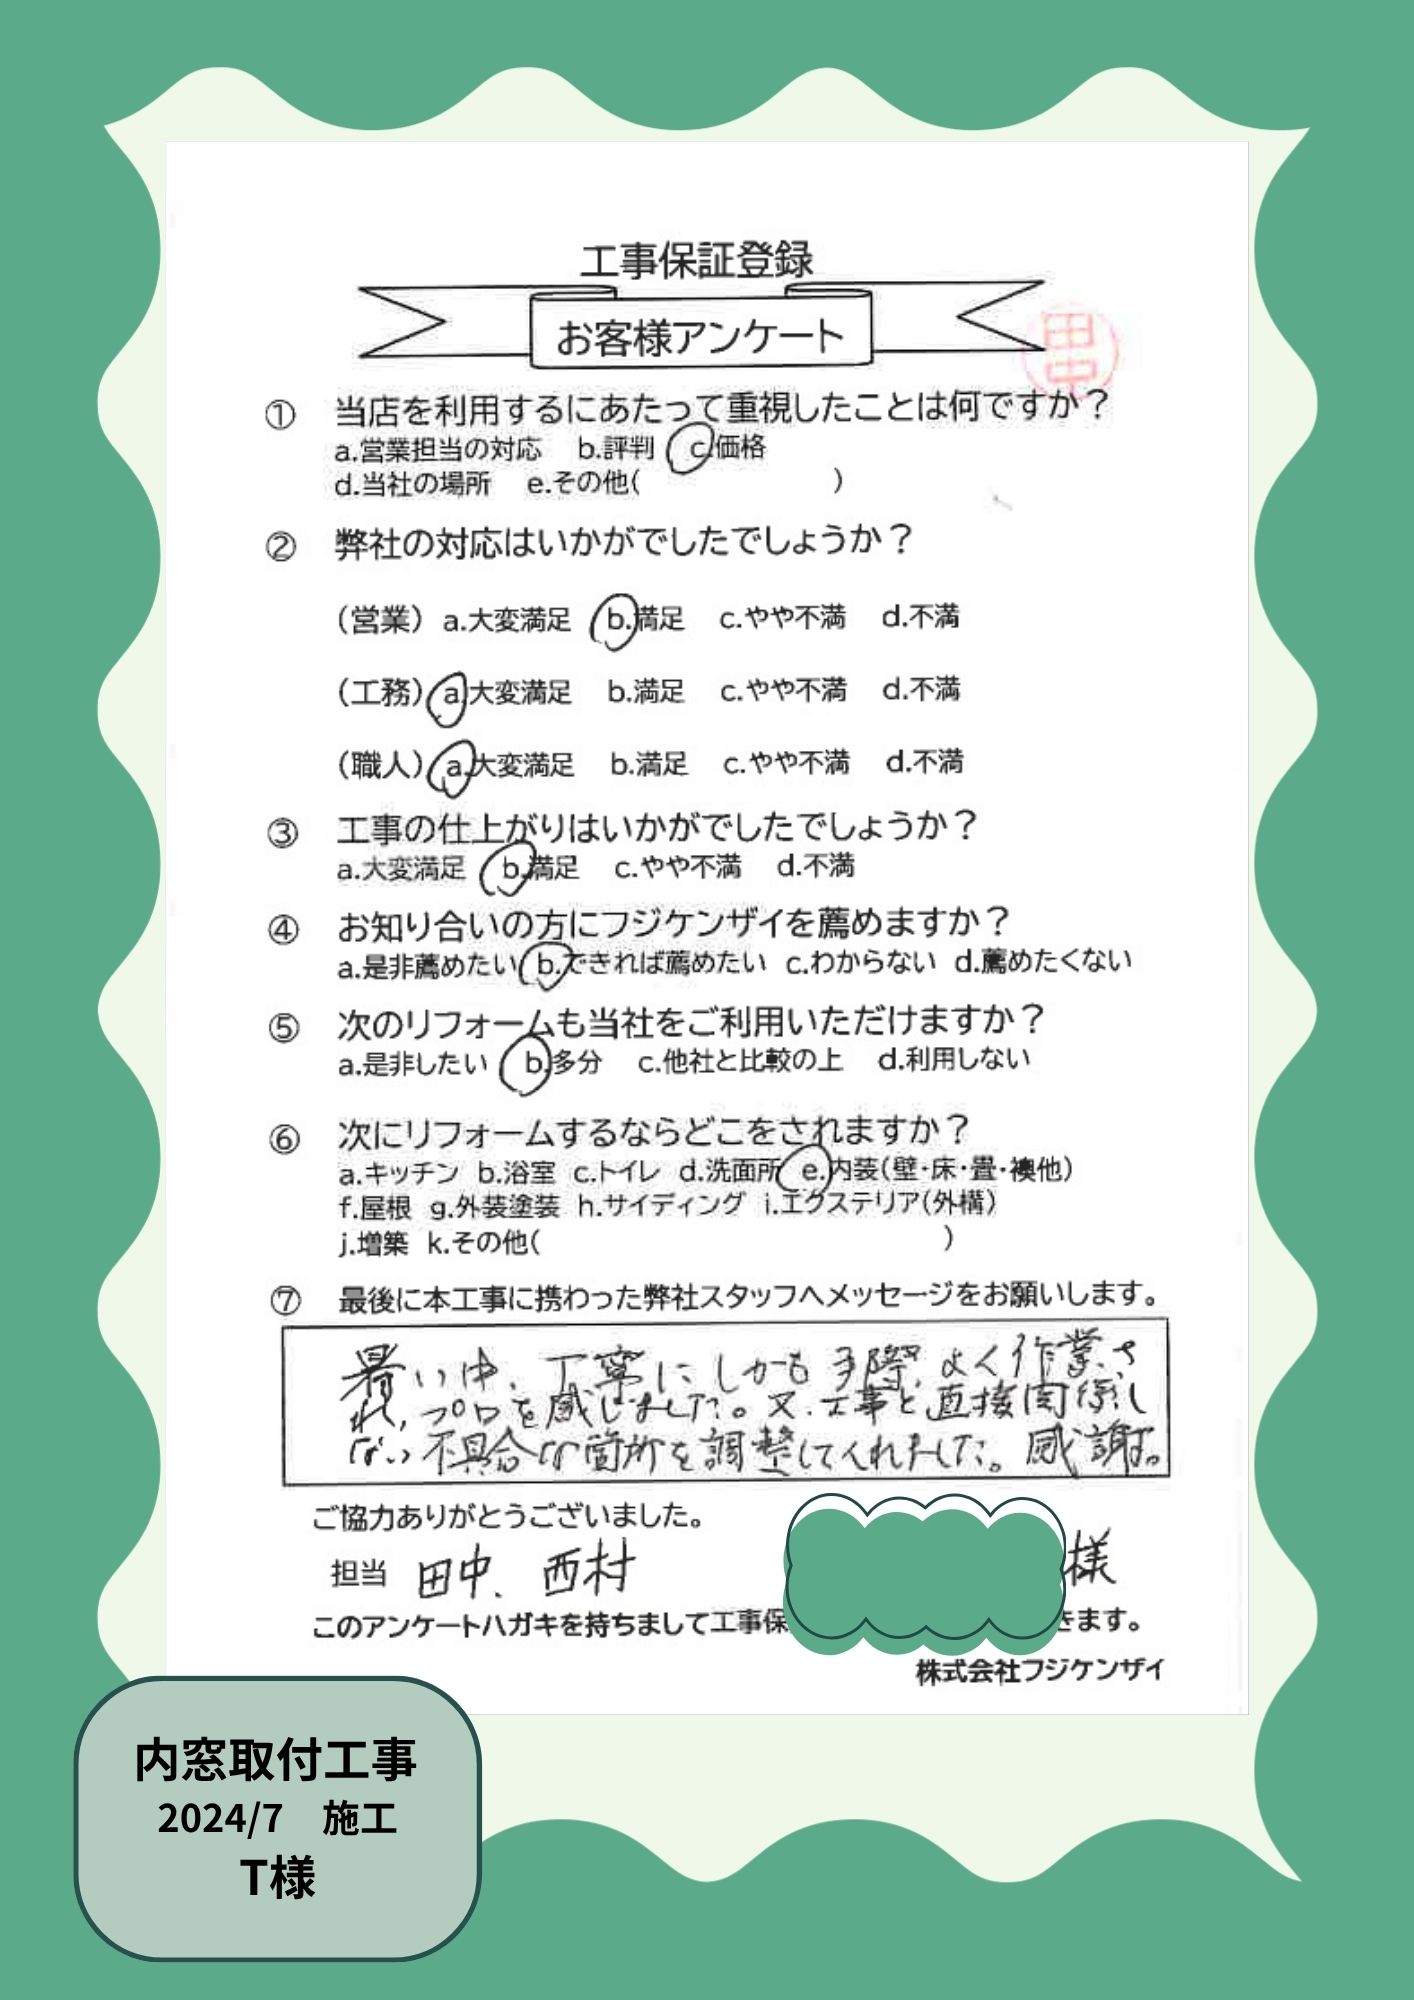 工事保証登録
お客様アンケート
田中
① 当店を利用するにあたって重視したことは何ですか？
a.営業担当の対応 b.評判 c.価格
d.当社の場所 e.その他( )
② 弊社の対応はいかがでしたでしょうか？
（営業） a.大変満足 b.満足 c.やや不満 d.不満
（工務） a.大変満足 b.満足 c.やや不満 d.不満
（職人） a.大変満足 b.満足 c.やや不満 d.不満
③ 工事の仕上がりはいかがでしたでしょうか？
a.大変満足 b.満足 c.やや不満 d.不満
④ お知り合いの方にフジケンザイを薦めますか？
a.是非薦めたい b.できれば薦めたい c.わからない d.薦めたくない
⑤ 次のリフォームも当社をご利用いただけますか？
a.是非したい b.多分 c.他社と比較の上 d.利用しない
⑥ 次にリフォームするならどこをされますか？
a.キッチン b.浴室 c.トイレ d.洗面所 e.内装（壁・床・畳・襖他）
f.屋根 g.外装塗装 h.サイディング i.エクステリア（外構）
j.増築 k.その他( )
⑦ 最後に本工事に携わった弊社スタッフへメッセージをお願いします。
暑い中、丁寧に しかも手際よく作業さ
れ、プロを感じました。又、工事と直接関係し
ない不具合な箇所を調整してくれました。感謝。
ご協力ありがとうございました。
担当 田中、西村
様
このアンケートハガキを持ちまして工事保 きます。
株式会社フジケンザイ
内窓取付工事
2024/7 施工
T様